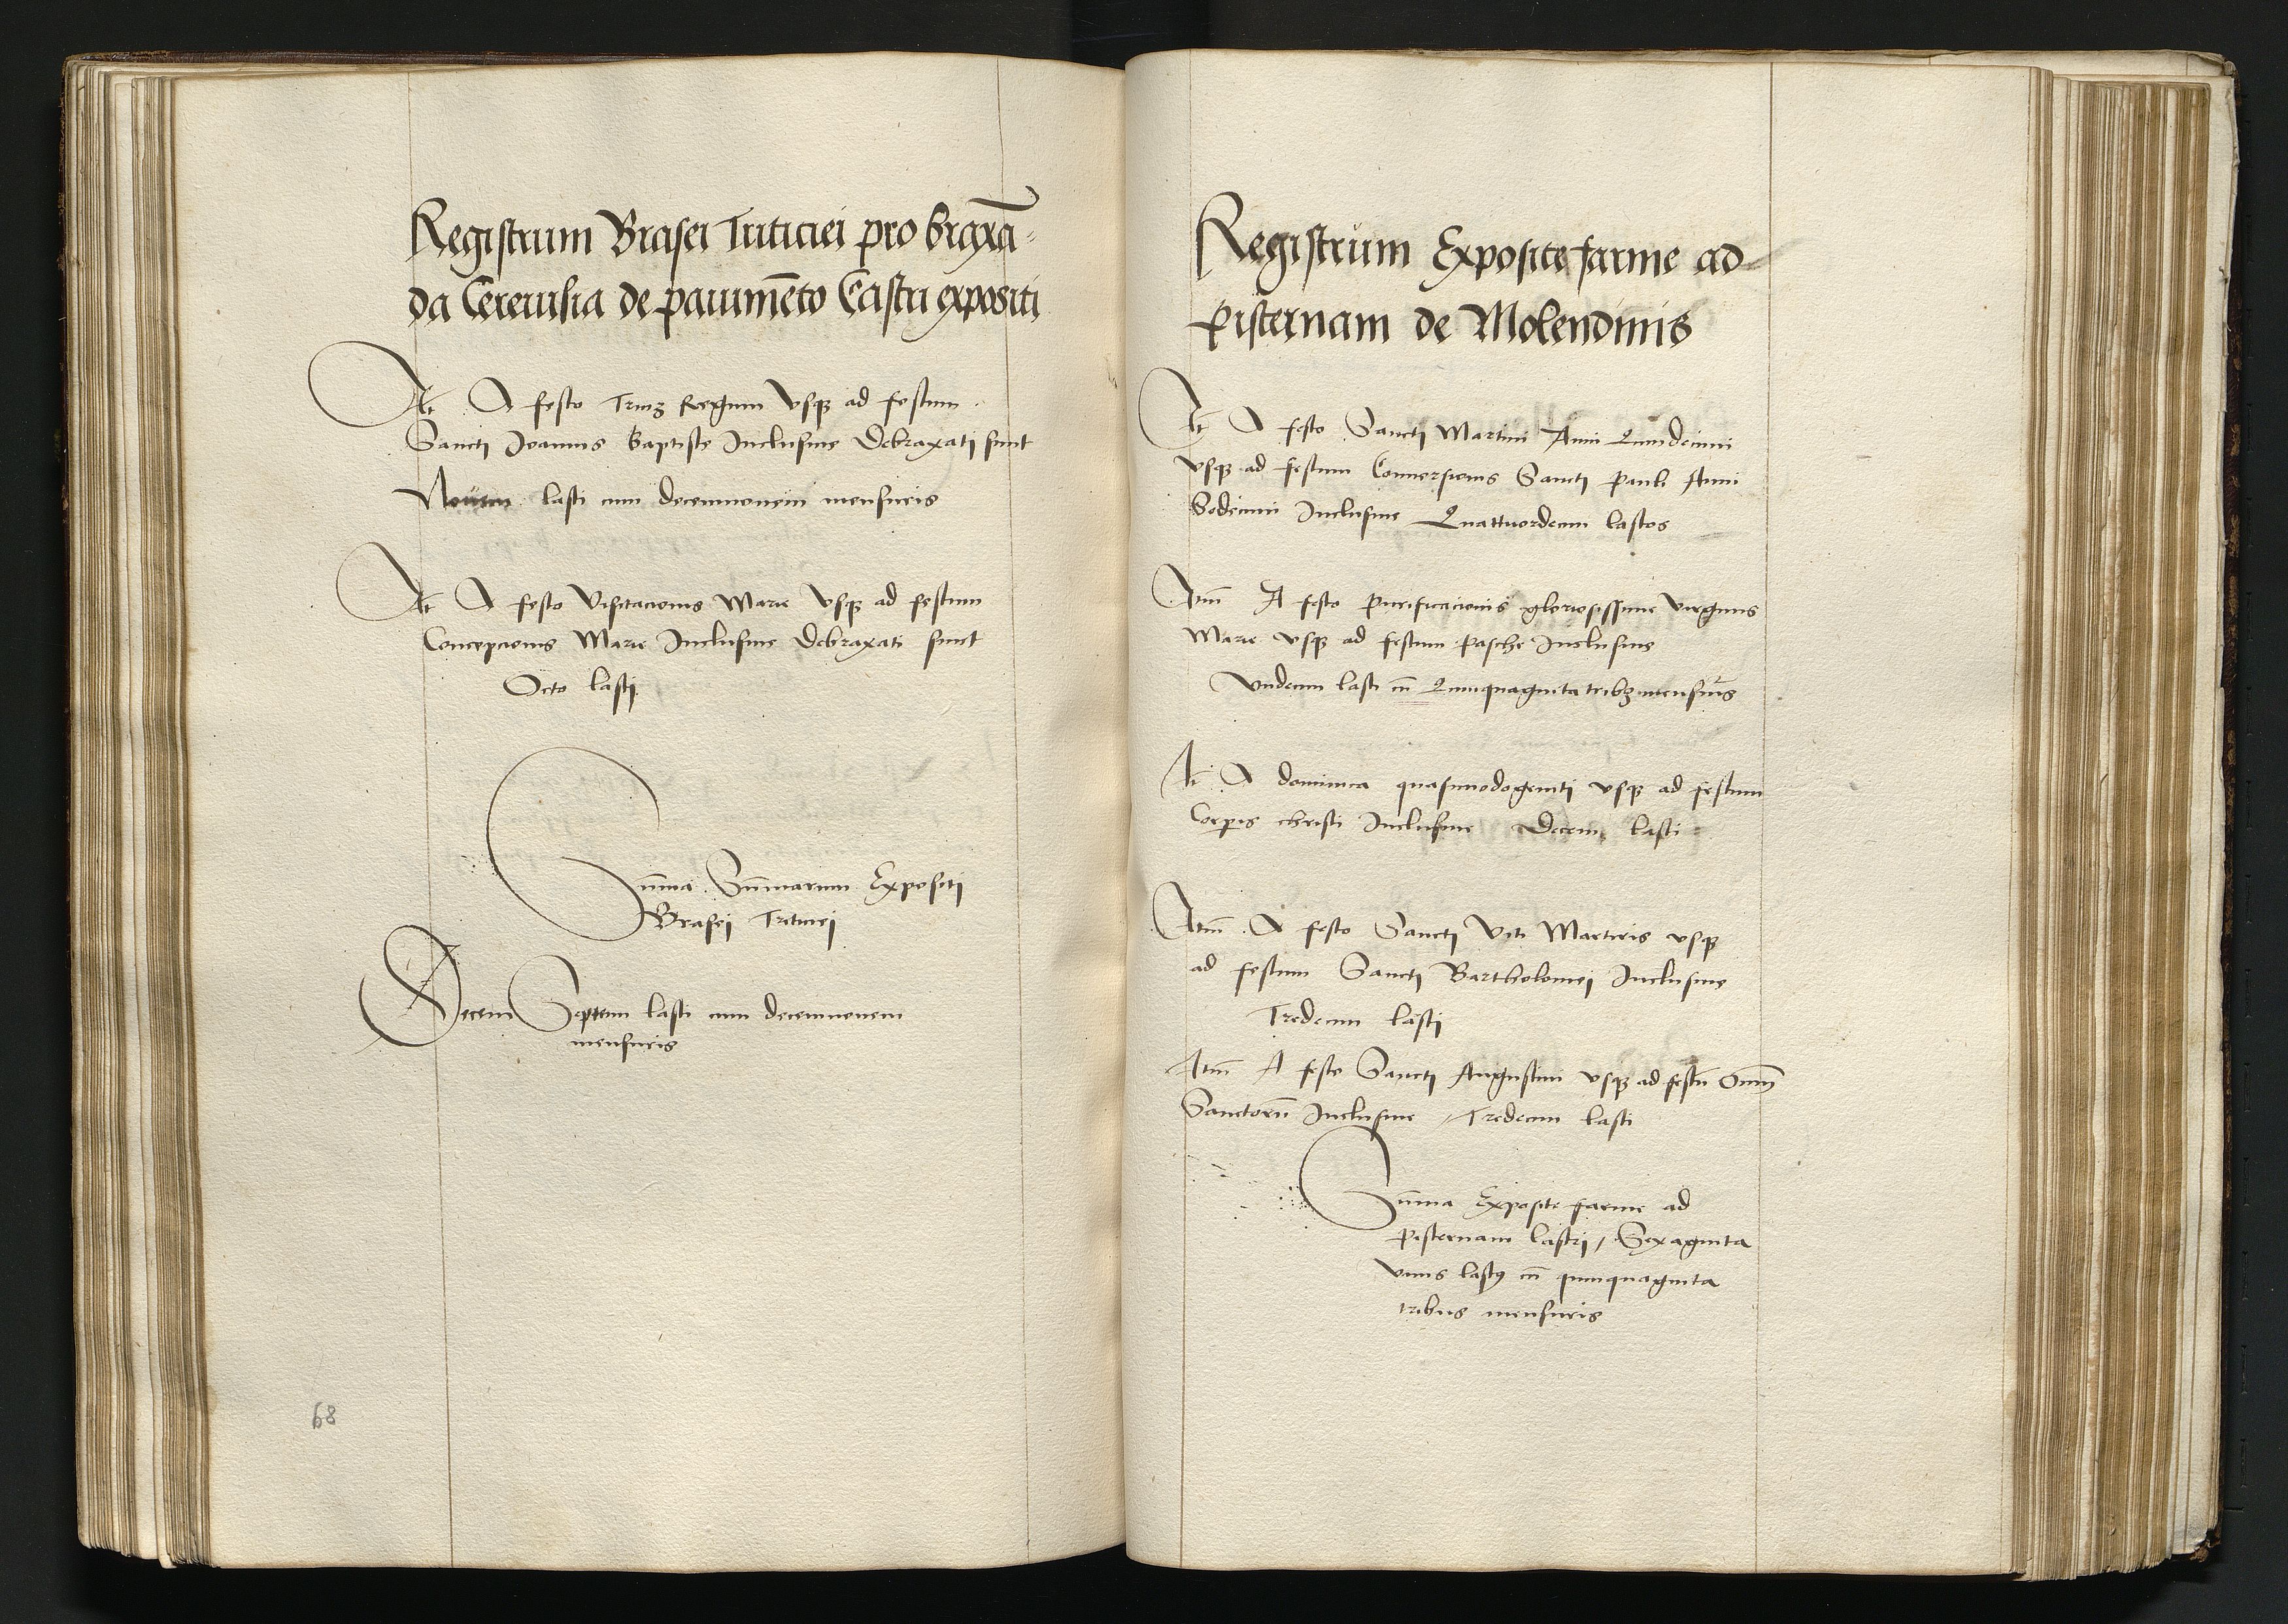 Registrum Brasei Triticiei pro braxā-
da Cerevisia de pavimēto Castri expositi
It A festo Triuʒ Regum vsqʒ ad festum
Sancti Joannis Baptiste Inclusiue Debraxati sunt
Nouem lasti cum decemnouem mensuris
It A festo Visitacionis Marie vsqʒ ad festum
Concepcionis Marie Inclusiue Debraxati sunt
Octo lasti
Sūma Sūmarum Expositi
Brasej Triticiej
Decem Septem lasti cum decemnouem
mensuris
68
Registrum Exposite farine ad
Pisternam de Molendinis
It A festo Sancti Martini Anni Quindecimi
vsqʒ ad festum Conuersionis Sancti Pauli Anni
Sedecimi Inclusiue Quattuordecim lastos
Itm̄ A festo Purificacionis gloriosissime virginis
Marie vsqʒ ad festum Pasche Inclusiue
Vndecim lasti cū Quinquaginta tribʒ mensur̄is
It A dominica quasimodogeniti vsqʒ ad festum
Corporis christi Inclusiue Decem lasti
Itm̄ A festo Sancti Viti Martiris vsqʒ
ad festum Sancti Bartholomej Inclusiue
Tredecim lasti
Itm̄ A festo Sancti Augustini vsqʒ ad festū Omīm
Sanctorū Inclusiue Tredecim lasti
Sūma Exposite farine ad
Pisternam Castrj / Sexaginta
vnus lastꝰ cū quinquaginta
tribus mensuris